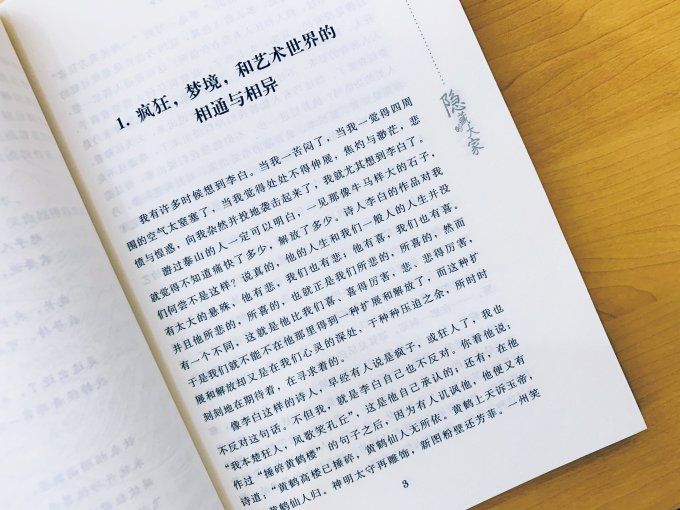 1. 疯狂，梦境，和艺术世界的
相通与相异
隐藏的大家
我有许多时候想到李白。当我一苦闷了，当我一觉得四周
围的空气太窒塞了，当我觉得处处不得伸展，焦灼与渺茫，悲
愤与惶惑，向我杂然并投地袭击起来了，我就尤其想到李白了。
游过泰山的人一定可以明白，一见那像牛马样大的石子，
就觉得不知道痛快了多少，解放了多少。诗人李白的作品对我
们何尝不是这样？说真的，他的人生和我们一般人的人生并没
有太大的悬殊，他有悲，我们也有悲；他有喜，我们也有喜。
并且他所悲的，所喜的，也就正是我们所悲的，所喜的，然而
有一个不同，这就是他比我们喜、喜得厉害，悲、悲得厉害，
于是我们就不能不在他那里得到一种扩展和解放了，而这种扩
展和解放却又是在我们心灵的深处，于种种压迫之余，所时时
刻刻地在期待着，在寻求着的。
像李白这样的诗人，早经有人说是疯子，或狂人了，我也
不反对这句话。不但我，就是李白自己也不反对。你看他说：
“我本楚狂人，凤歌笑孔丘”，这是他自己承认的；还有，在他
作过“捶碎黄鹤楼”的句子之后，因为有人讥讽他，他便又有
诗道：“黄鹤高楼已捶碎，黄鹤仙人无所依。黄鹤上天诉玉帝，
黄鹤仙人归。神明太守再雕饰，新图粉壁还芳菲。一州笑
3